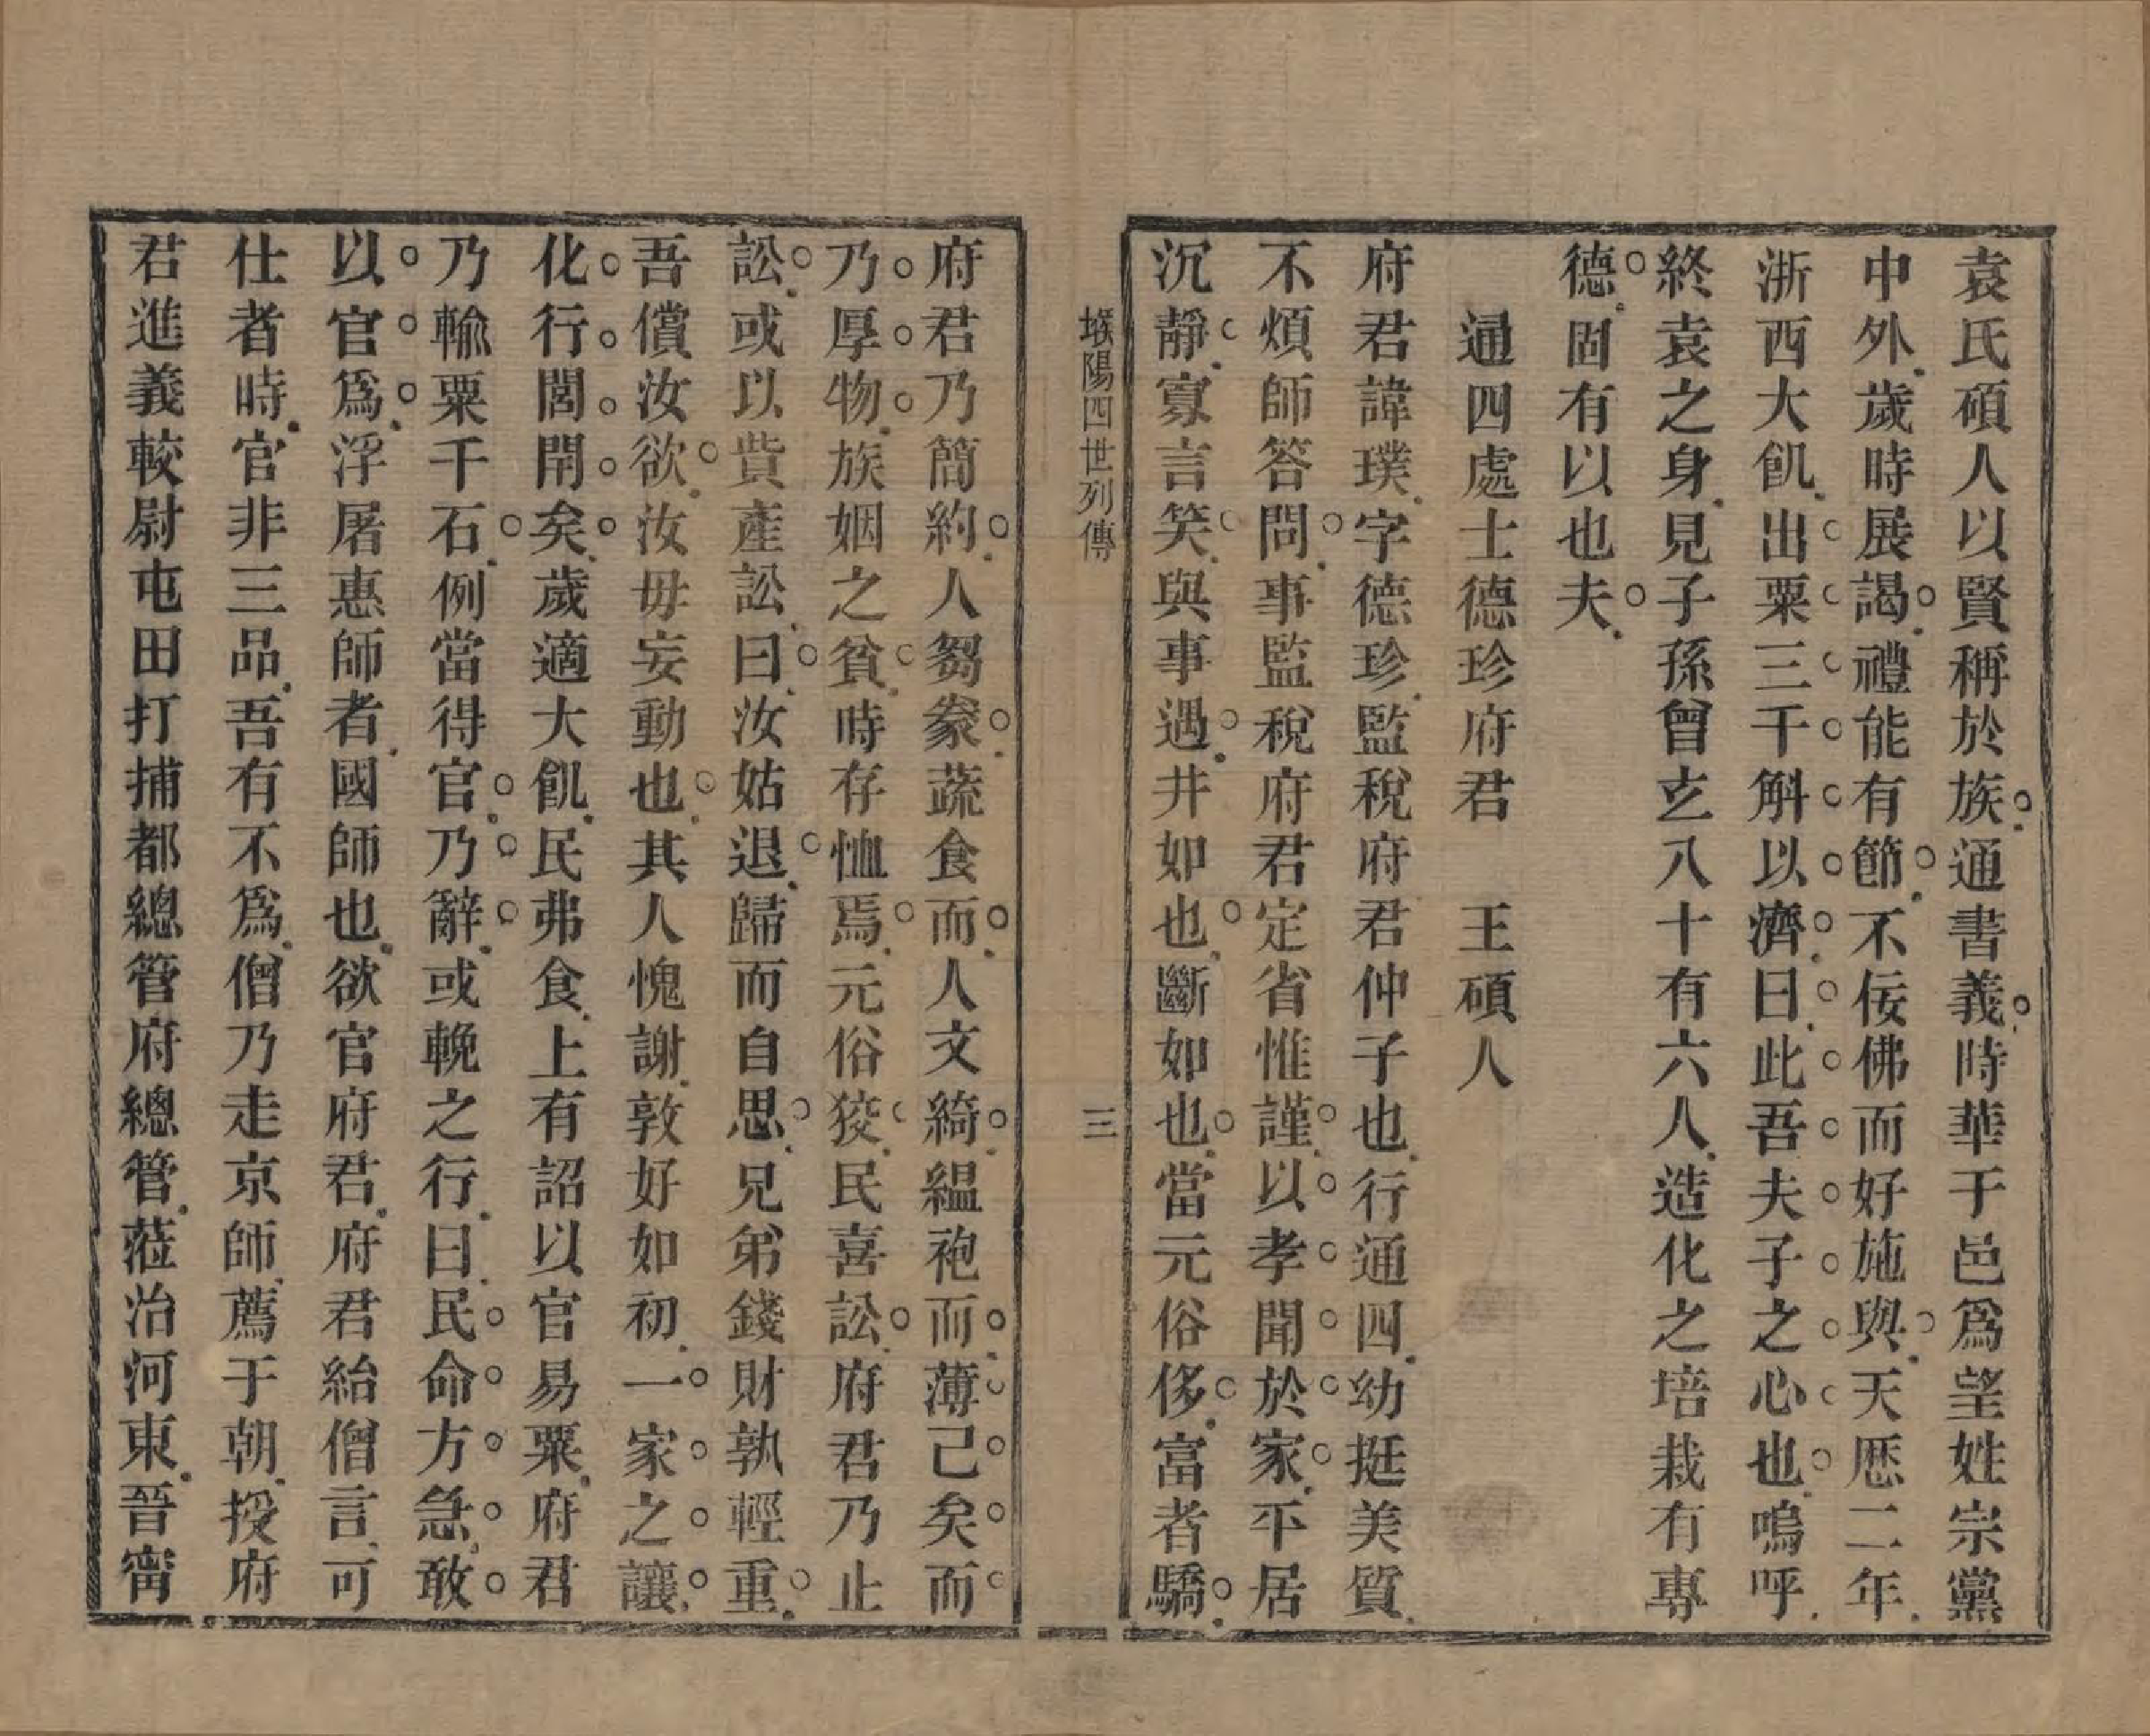 袁氏碩人以賢稱於族通書義時華于邑爲望姓宗黨
中外歲時展謁禮能有節不佞佛而好施與天厯二年
浙西大飢出粟三千斛以濟曰此吾夫子之心也嗚呼
終袁之身見子孫曾玄八十有六人造化之培栽有專
德固有以也夫
通四處士德珍府君　王碩人
府君諱璞字德珍監稅府君仲子也行通四幼挺美質
不煩師答問事監稅府君定省惟謹以孝聞於家平居
沉靜寡言笑與事遇井如也斷如也當元俗侈富者驕
堠陽四世列傳　三
府君乃簡約人芻豢蔬食而人文綺緼袍而薄己矣而
乃厚物族姻之貧時存恤焉元俗狡民喜訟府君乃止
訟或以貲產訟曰汝姑退歸而自思兄弟錢財孰輕重
吾償汝欲汝毋妄動也其人愧謝敦好如初一家之讓
化行閭閈矣歲適大飢民弗食上有詔以官易粟府君
乃輸粟千石例當得官乃辭或輓之行曰民命方急敢
以官爲浮屠惠師者國師也欲官府君府君紿僧言可
仕者時官非三品吾有不爲僧乃走京師薦于朝授府
君進義較尉屯田打捕都總管府總管蒞治河東晉甯